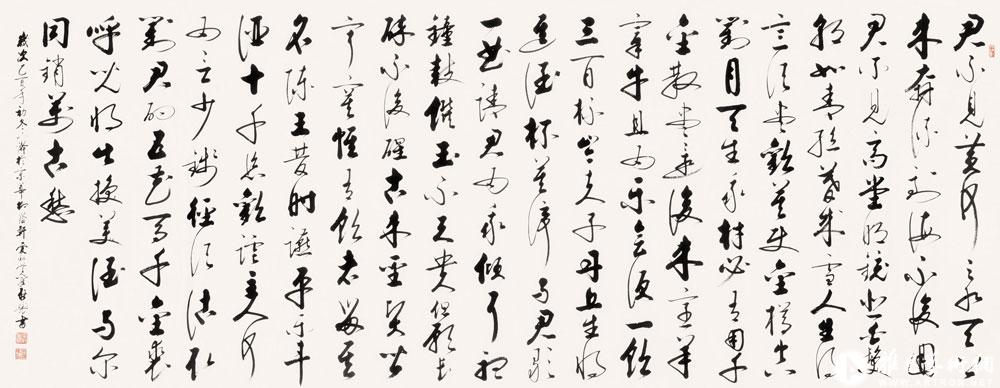 君不見黃河之水天上
來奔流到海不復回
君不見高堂明鏡悲白髮
朝如青絲暮成雪人生得
意須盡歡莫使金樽空
對月天生我材必有用千
金散盡還復來烹羊
宰牛且為樂會須一飲
三百杯岑夫子丹丘生將
進酒杯莫停與君歌
一曲請君為我傾耳聽
鐘鼓饌玉不足貴但願長
醉不復醒古來聖賢皆
寂寞惟有飲者留其
名陳王昔時讌平樂斗
酒十千恣歡謔主人何
為言少錢徑須沽取
對君酌五花馬千金裘
呼兒將出換美酒與爾
同銷萬古愁
歲次己亥年初冬
雅昌艺术网
WWW.ARTRON.NET